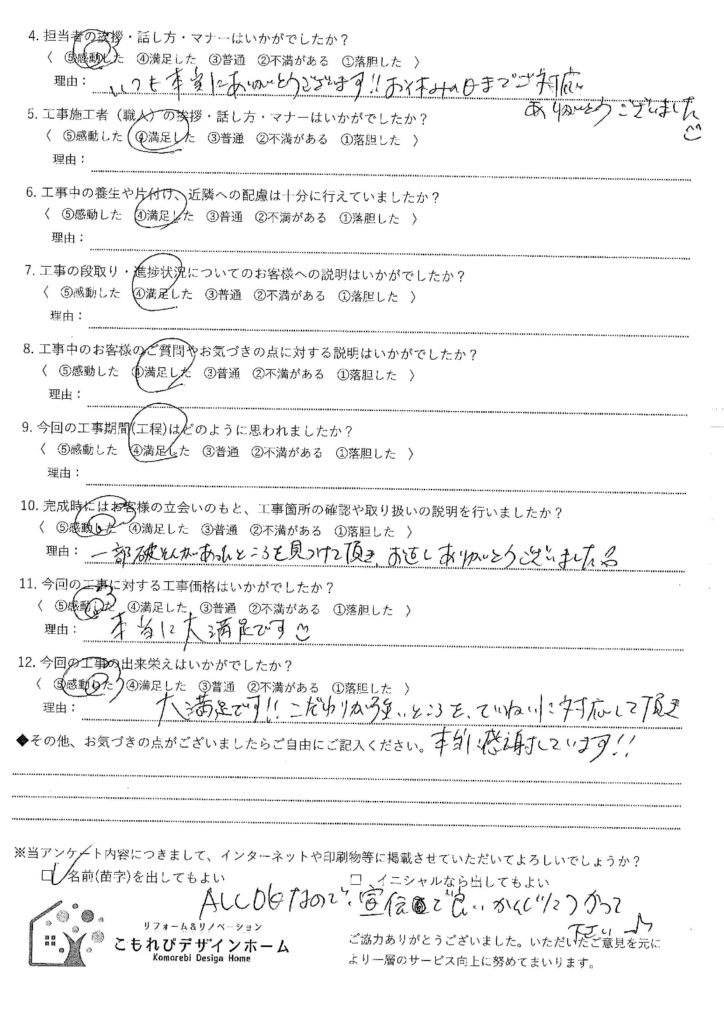 4. 担当者の挨拶・話し方・マナーはいかがでしたか？
〈 ⑤感動した ④満足した ③普通 ②不満がある ①落胆した 〉
理由： いつも本当にありがとうございます!! お休みの日までご対応
ありがとうございました
5. 工事施工者（職人）の挨拶・話し方・マナーはいかがでしたか？
〈 ⑤感動した ④満足した ③普通 ②不満がある ①落胆した 〉
理由：
6. 工事中の養生や片付け、近隣への配慮は十分に行えていましたか？
〈 ⑤感動した ④満足した ③普通 ②不満がある ①落胆した 〉
理由：
7. 工事の段取り・進捗状況についてのお客様への説明はいかがでしたか？
〈 ⑤感動した ④満足した ③普通 ②不満がある ①落胆した 〉
理由：
8. 工事中のお客様のご質問やお気づきの点に対する説明はいかがでしたか？
〈 ⑤感動した ④満足した ③普通 ②不満がある ①落胆した 〉
理由：
9. 今回の工事期間(工程)はどのように思われましたか？
〈 ⑤感動した ④満足した ③普通 ②不満がある ①落胆した 〉
理由：
10. 完成時にはお客様の立会いのもと、工事箇所の確認や取り扱いの説明を行いましたか？
〈 ⑤感動した ④満足した ③普通 ②不満がある ①落胆した 〉
理由： 一部破そんがあったところを見つけて頂き、お直しありがとうございました
11. 今回の工事に対する工事価格はいかがでしたか？
〈 ⑤感動した ④満足した ③普通 ②不満がある ①落胆した 〉
理由： 本当に大満足です
12. 今回の工事の出来栄えはいかがでしたか？
〈 ⑤感動した ④満足した ③普通 ②不満がある ①落胆した 〉
理由： 大満足です!! こだわりが強いところを、ていねいに対応して頂き
◆その他、お気づきの点がございましたらご自由にご記入ください。 本当に感謝しています!!
※当アンケート内容につきまして、インターネットや印刷物等に掲載させていただいてよろしいでしょうか？
□ 名前(苗字)を出してもよい □ イニシャルなら出してもよい
ALL OKなので、宣伝で良いかんじにつかって
下さい♪
リフォーム&リノベーション
こもれびデザインホーム
Komorebi Design Home
ご協力ありがとうございました。いただいたご意見を元に
より一層のサービス向上に努めてまいります。